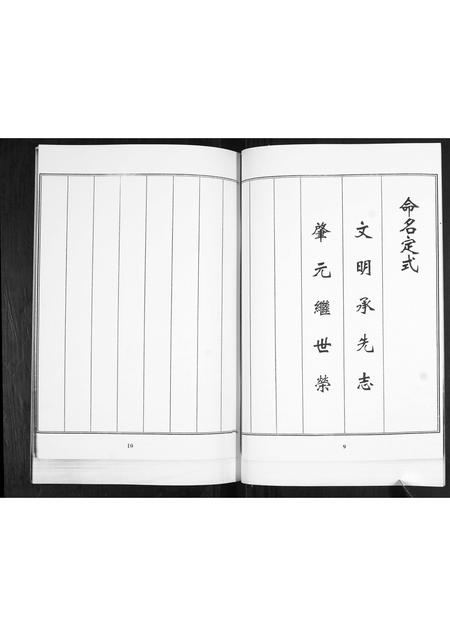 命名定式
文明承先志
肇元繼世榮
9
10